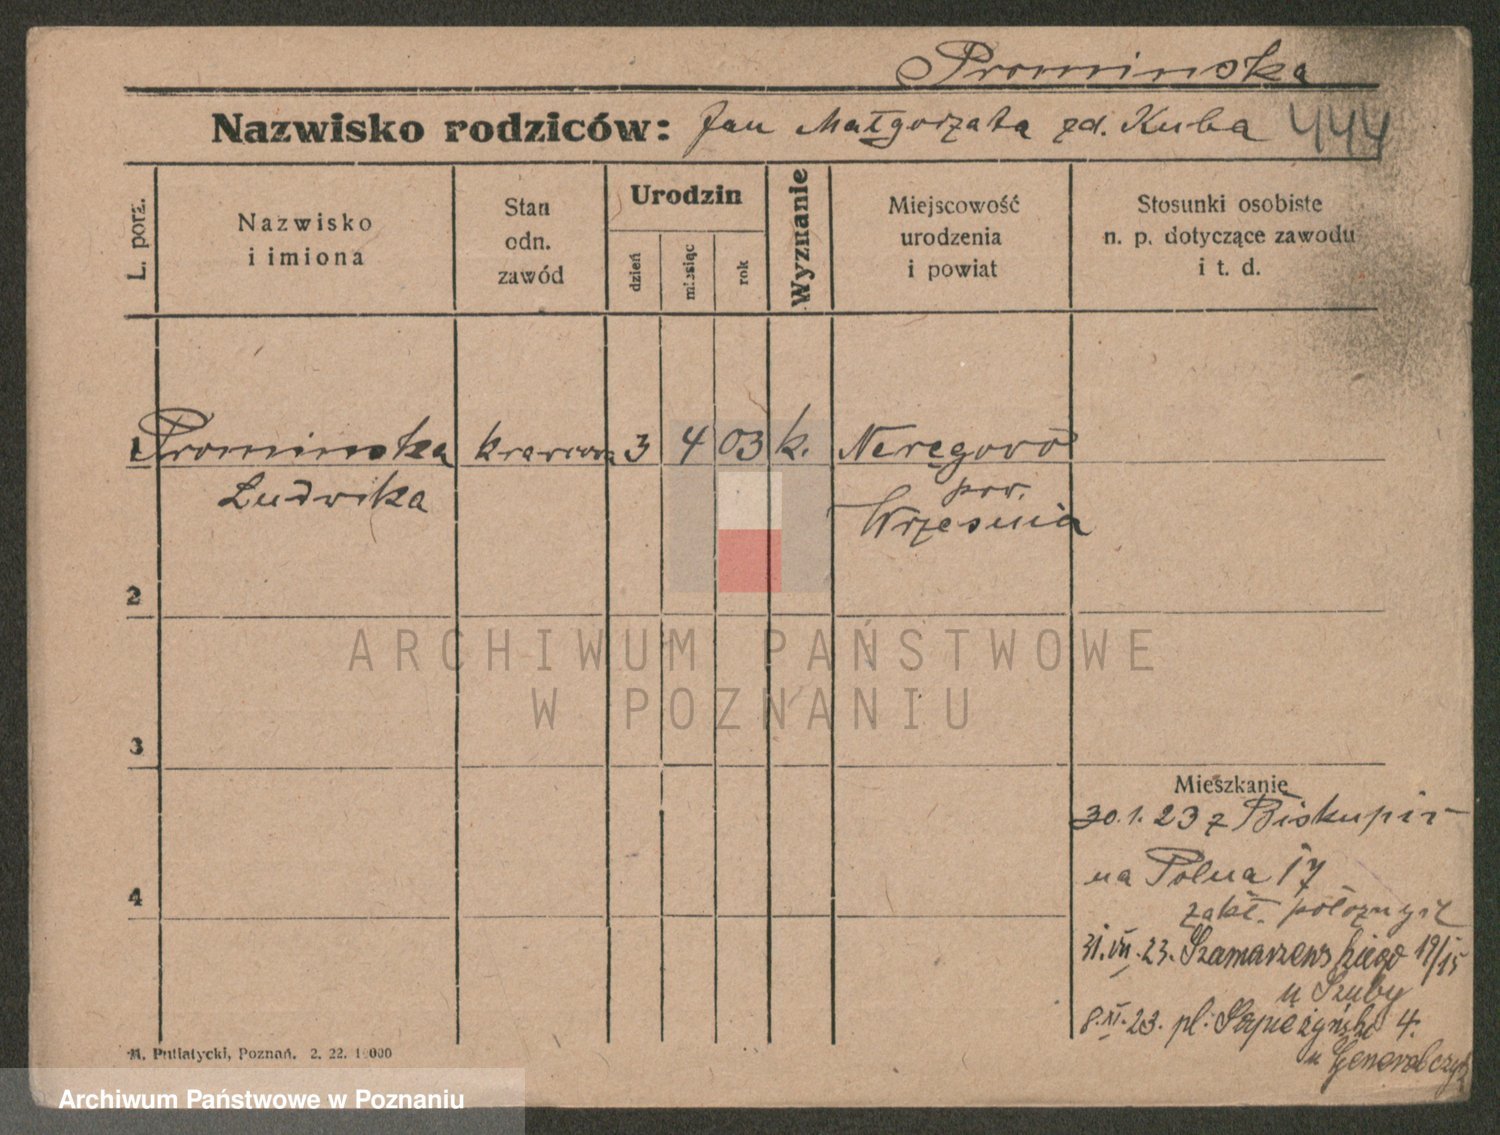 Prominska
Nazwisko rodziców: Jan Małgorzata zd. Kuba 444
L. porz.
Nazwisko
i imiona
Stan
odn.
zawód
Urodzin
dzień
miesiąc
rok
Wyznanie
Miejscowość
urodzenia
i powiat
Stosunki osobiste
n. p. dotyczące zawodu
i t. d.
1 Prominska krawcowa 3 4 03 k.
Ludwika
pow.
Września
2
3
4
Mieszkanie
30.1.23 z Biskupic
na Polna 17
zakł.
31.VII.23. Szamarzewskiego 19/15
u Szuby
8.XI.23. pl. Sapieżyński 4.
u
M. Putiatycki, Poznań. 2. 22. 1000
ARCHIWUM PAŃSTWOWE
W POZNANIU
Archiwum Państwowe w Poznaniu